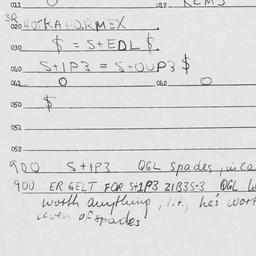 011 012
3R
020 HOTKAHORMEX
030 $ = S+EDL $
040 S+1P3 = S-0UP3 $
041 0 042 0
050 $
051
052
900 S+1P3 QGL spades, in ca
900 ER GELT FOR S+1P3 21B3S+3 QGL
worth anything, lit., he's wort
seven of spades